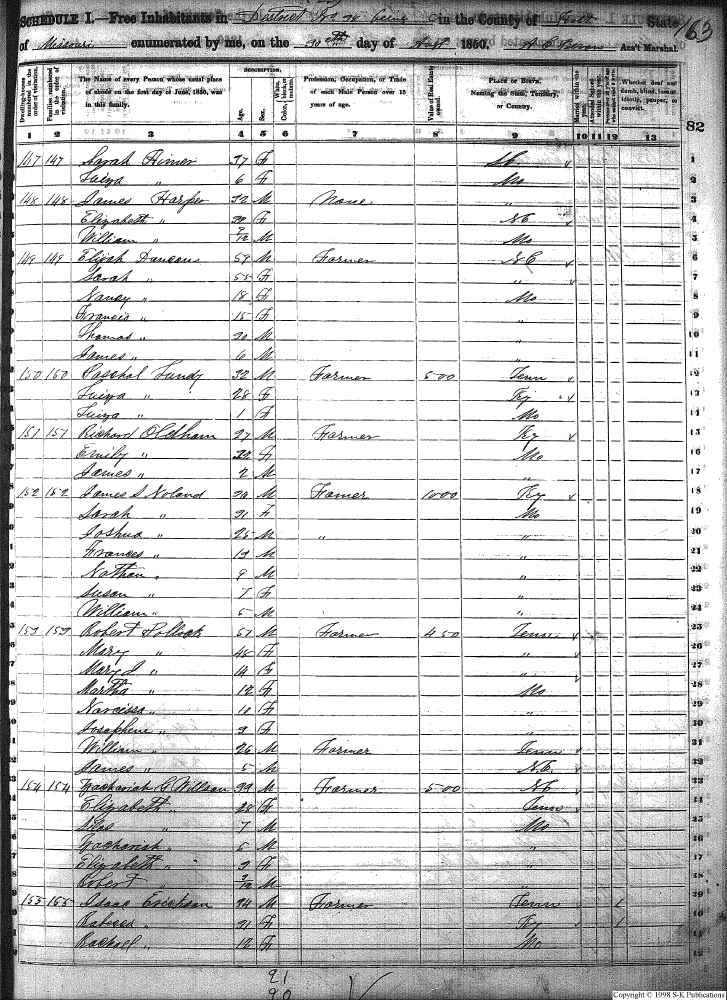 163
SCHEDULE I.—Free Inhabitants in District No 78 being in the County of State
of Missouri enumerated by me, on the 30th day of Augt 1850. Ass't Marshal.
DESCRIPTION.
Dwelling-houses numbered in the order of visitation. Families numbered in the order of visitation. The Name of every Person whose usual place of abode on the first day of June, 1850, was in this family. Age. Sex. Color, White, black, or mulatto. Profession, Occupation, or Trade of each Male Person over 15 years of age. Value of Real Estate owned. PLACE OF BIRTH. Naming the State, Territory, or Country. Married within the year. Attended School within the year. Whether deaf and dumb, blind, insane, idiotic, pauper, or convict.
1 2 3 4 5 6 7 8 9 10 11 12 13
82
147 147 Sarah Himer 37 F 1
Luiza " 6 F Mo 2
148 148 James Harper 32 M None " 3
Elizabeth " 30 F NC 4
William " M Mo 5
149 149 Elijah Duncan 59 M Farmer NC 6
Sarah " 55 F " 7
Nancy " 18 F Mo 8
Francis " 15 F " 9
Thomas " 20 M " 10
James " 6 M " 11
150 150 Paschal Lundy 32 M Farmer 500 Tenn 12
Luiza " 28 F Ky 13
Luiza " 1 F Mo 14
151 151 Richard Oldham 27 M Farmer Ky 15
Emily " 22 F Mo 16
James " 2 M " 17
152 152 James S Noland 30 M Famer 1000 Ky 18
Sarah " 31 F Mo 19
Joshua " 25 M " " 20
Frances " 13 M " 21
Nathan " 9 M " 22
Susan " 7 F " 23
William " 5 M " 24
153 153 Robert Pollock 51 M Farmer 450 Tenn 25
Mary " 46 F " 26
Mary J " 14 F " 27
Martha " 12 F Mo 28
Narcissa " 10 F " 29
Josephene " 9 F " 30
William " 26 M Farmer Tenn 31
James " 5 M N.C. 32
154 154 Zachariah G Willson 33 M Farmer 500 NC 33
Elizabeth " 28 F Tenn 34
Silas " 7 M Mo 35
Zachariah " 5 M " 36
Elizabeth " 3 F " 37
Robert M 38
155 155 Isaac Erickson 34 M Farmer Tenn 1 39
Rebecca " 31 F Ky 1 40
Rachael " 12 F Mo 41
21
20
Copyright © 1998 S-K Publications